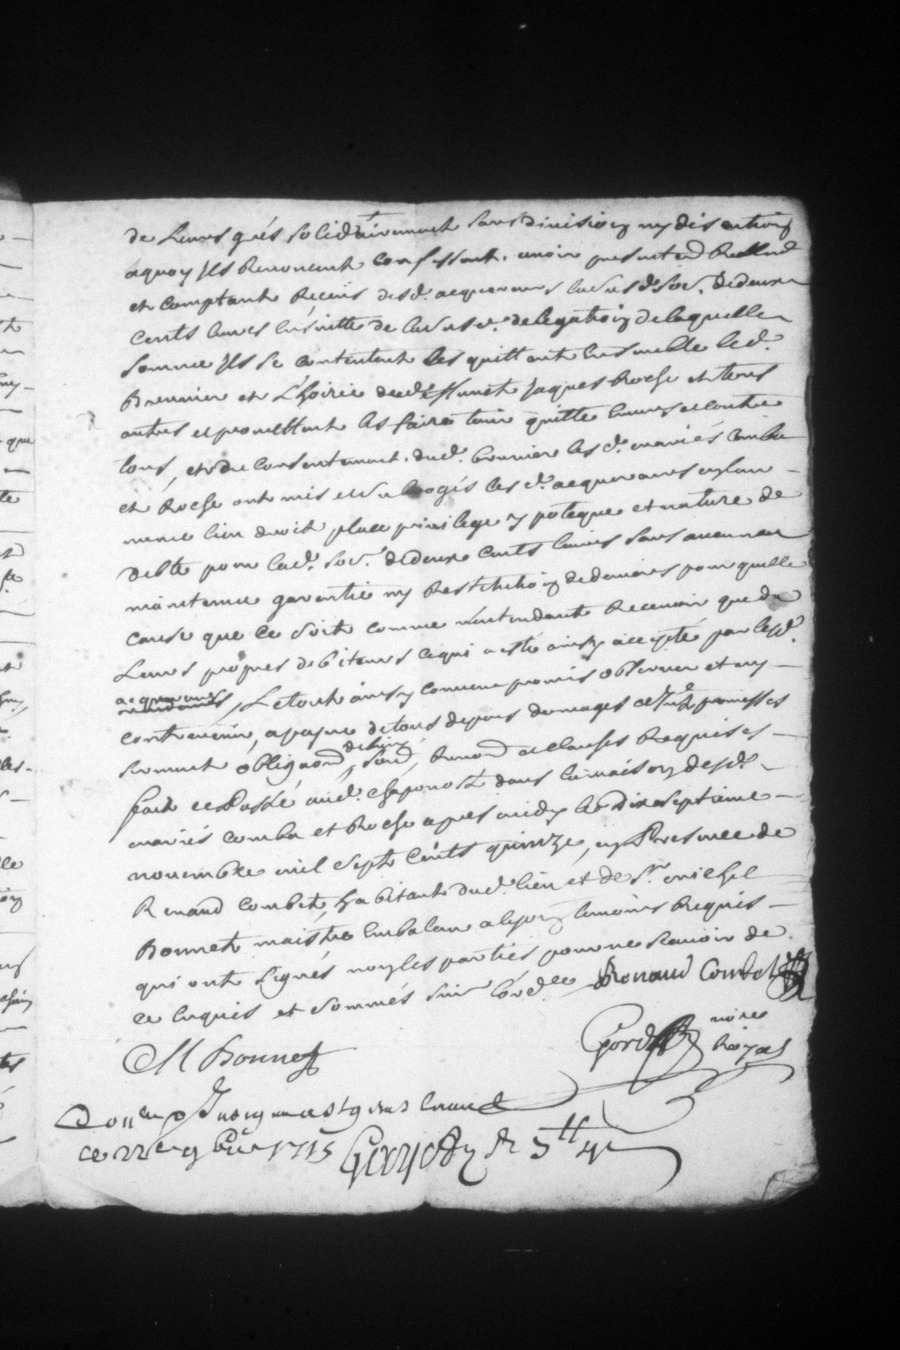 de Leurs grés solidairement sans division ny discution
aquoy Ils Renoncent confessent avoir presentend Reallmt
et comptant Receus desd. acquereurs lasusd. so.e. de deux
cents livres ensuitte de lasusd. delegation de laquelle
somme Ils se contentent les quittent ensemble led.
Brunier et L'hoirie dud. deffunct Jaques Roche et tous
autres et promettent les faire tenir quitte envers et contre
tous, et du consentement dud. Brunier lesd. mariés Comba
et Roche ont mis et subrogés lesd. acquereurs en leur
mesme lieu droit place privilege ypoteque et nature de
debte pour lad. so.e. de deux cents livres sans aucune
maintenue garentie ny Restitution de deniers pour quelle
cause que ce soit comme n'entendant Recevoir que de
Leurs propres debiteurs ce qui a esté ainsy accepté par lesd.
acquereurs, Le tout ainsy convenu promis observer et ny
contrevenir, a payne de tous depens domages et
serment obligaon de biens, Renon et clauses Requises
fait et Passé aud. chaponost dans la maison desd.
mariés comba et Roche apres midy le dix septieme
novembre mil sept cents quinze, en Presence de
Renaud Combet, habitant dud. lieu et de Sr. michel
Bonnet maistre Embaleur a lyon temoins Requis
qui ont signés non les parties pour ne scavoir de
ce Enquis et sommés suiv. l'ord.ce Renaud Combet
M Bonnet
nore
Royal
ce 22e 9bre 1715